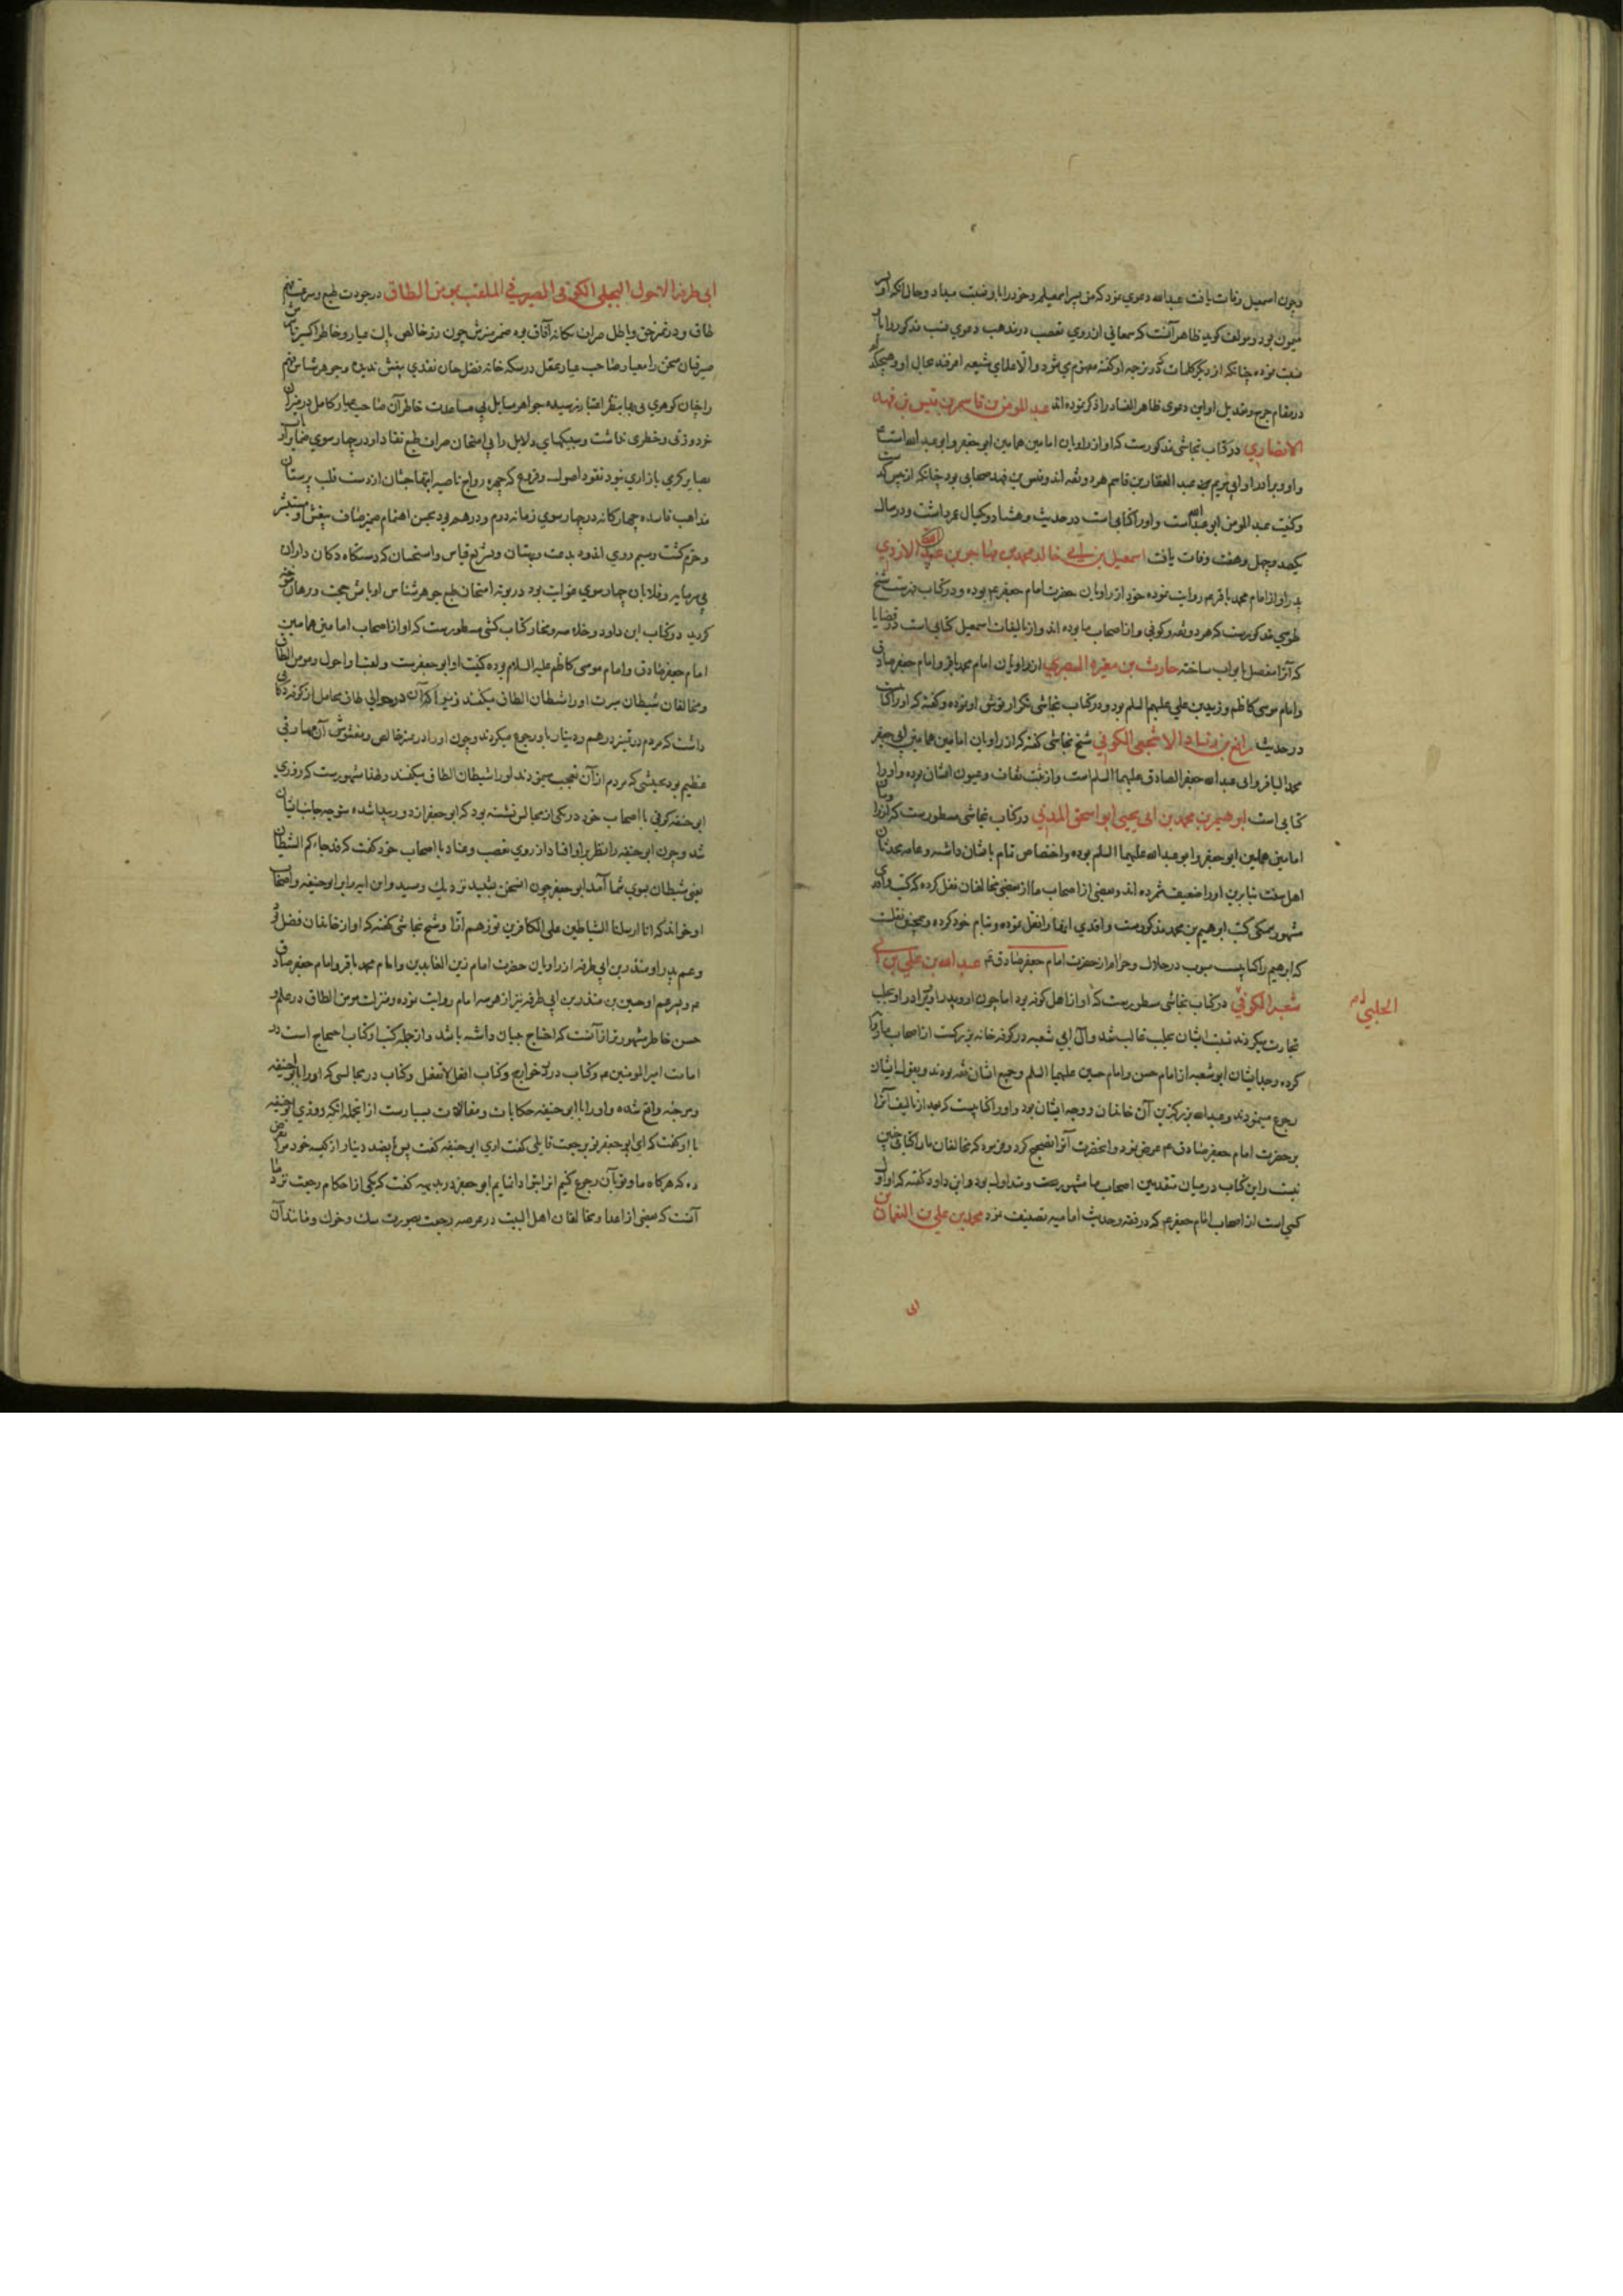 و چون اسمعیل وفات یافت عبدالله دعوی نمود که من پسر اسمعیلم و خود را باو نسبت میداد و حال آنکه او
میمون بود و مولف کوید ظاهر آنست که سمعانی از روی تعصب در مذهب دعوی نسب مذکور را بان
نسبت نموده چنانکه از دیکر کلمات که در ترجمه او کفته مفهوم می شود و الا علمای شیعه اعرفند بحال او و هیچکدام
در مقام جرح و تعدیل او این دعوی ظاهر الفساد را ذکر نموده اند عبد المومن بن قاسم بن قیس بن فهد
الانصاری در کتاب نجاشی مذکورست که او از راویان امامین همامین ابو جعفر و ابو عبدالله است
و او و برادر او ابی مریم عبد الغفار بن قاسم هر دو ثقه اند و قیس بن فهد صحابی بود چنانکه از پیش کذشت
و کنیت عبد المومن ابو عبدالله است و او را کتابی است در حدیث و هشتاد و یکسال عمر داشت و در سال
یکصد و چهل و هفت وفات یافت اسمعیل بن ابی خالد محمد بن مهاجر بن عبید الازدی
پدر او از امام محمد باقر ع روایت نموده خود از راویان حضرت امام جعفر ع بوده و در کتاب فهرست شیخ
طوسی مذکورست که هر دو ثقه و کوفی و از اصحاب ما بوده اند و از تالیفات اسمعیل کتابی است در قضایا
که آنرا مفصل بابواب ساخته حارث بن مغیره البصری از راویان امام محمد باقر و امام جعفر صادق
و امام موسی کاظم و زید بن علی علیهم السلم بود و در کتاب نجاشی تکرار توثیق او نموده و کفته که او را کتابیست
در حدیث رافع بن زیاد الاشجعی الکوفی شیخ نجاشی کفته که از راویان امامین همامین ابی جعفر
محمد الباقر و ابی عبدالله جعفر الصادق علیهما السلم است و از ثبت ثقات و عیون ایشان بوده و او را
کتابی است ابرهیم بن محمد بن ابی یحیی ابو اسحق المدنی در کتاب نجاشی مسطورست که از راویان
امامین همامین ابو جعفر و ابو عبدالله علیهما السلم بوده و اختصاص تمام بایشان داشته و عامه محدثان
اهل سنت بنا برین او را ضعیف شمرده اند و بعضی از اصحاب ما از بعضی مخالفان نقل کرده که کتب واقدی
مشهور بعینه کتب ابرهیم بن محمد مذکورست واقدی آنها را نقل نموده و بنام خود کرده و همچنین نقلست
که ابرهیم را کتابیست مبوب در حلال و حرام از حضرت امام جعفر صادق ع عبد الله بن علی بن ابی
شعبه الکوفی در کتاب نجاشی مسطورست که او از اهل کوفه بود اما چون او و پدر او و برادر او بحلب
الحلبی
تجارت میکردند نسبت ایشان بحلب غالب شد و آل ابی شعبه در کوفه خانه بزرکست از اصحاب ما
کرده و جد ایشان ابو شعبه از امام حسن و امام حسین علیهما السلم و جمیع ایشان ثقه بودند و بقول ایشان
رجوع مینمودند و عبدالله بزرکترین آن خاندان و وجه ایشان بود و او را کتابیست که بعد از تالیف آنرا
بر حضرت امام جعفر صادق ع عرض نمود و آنحضرت آنرا تصحیح کرد و فرمود که مخالفان ما را کتابی چنین
نیست و این کتاب در میان متقدمین اصحاب ما مشهورست و متداول بود و ابن داود کفته که او اول
کسی است از اصحاب امام جعفر ع که در فقه و حدیث امامیه تصنیف نمود محمد بن علی بن النعمان بن
ابی
ابی طرفه الاحول البجلی الکوفی الصیرفی الملقب بمومن الطاق در جودت طبع و سرعت فهم
طاق و در تمیز حق و باطل صراف یکانه آفاق بوده
صیرفیان سخن را معیار صاحب عیار عقل در سکه خانه فضل چنان نقدی بیغش ندیده و جوهر شناس فهم
را چنان کوهری بی بها بنظر اعتبار نرسیده جواهر مسایل بی مساعدت خاطر آن صاحب عیار کامل در میزان
خرد وزنی و خطری نداشت و سبیکهای دلایل را بی امتحان صراف طبع نقاد او در چار سوی
بصایر کرمی بازاری نبود نقود اصول و فروع که چهره رواج ناصیه ابتهاجشان از دست قلب پرستان
مذاهب فاسده چهارکانه در چار سوی زمانه در هم بود بحسن اهتمام
و خرم کشت و سیم روی اندود بدعت و بهتان و قیاس و استحسان که دستکاه دکان داران
بی سرمایه و قلابان چهار سوی غوایت بود در بوته امتحان طبع جوهر شناس او بآتش حجت و برهان سوخته
کردید در کتاب ابن داود و خلاصه و مختار کتاب کشی مسطورست که او از اصحاب امامین همامین
امام جعفر صادق و امام موسی کاظم علیه السلام بوده کنیت او ابو جعفرست و لقب او احول و مومن الطاق
و مخالفان شیطان سیرت او را شیطان الطاق میکفتند زیرا که در حوالی طاق محامل از کوفه دکانی
داشت که مردم در تمییز درهم و دینار باو رجوع میکردند و چون او را در تمیز خالص و مغشوش آن مهارتی
عظیم بود بحیثی که مردم از آن تعجب مینمودند او را شیطان الطاق میکفتند و لهذا مشهورست که روزی
ابو حنیفه کوفی با اصحاب خود در یکی از مجالس نشسته بود که ابو جعفر از دور پیدا شده متوجه جانب ایشان
شد و چون ابو حنیفه را نظر بر او افتاد از روی تعصب و عناد با اصحاب خود کفت که قد جاءکم الشیطان
یعنی شیطان بسوی شما آمد ابو جعفر چون این سخن بشنید نزدیک رسید و این آیه را بر ابو حنیفه و اصحاب
او خواند که انا ارسلنا الشیاطین علی الکافرین توزهم ازا و شیخ نجاشی کفته که او از خاندان فضل بود
و عم پدر او منذر بن ابی طرفه از راویان حضرت امام زین العابدین و امام محمد باقر و امام جعفر صادق
ع و پسر عم او حسین بن منذر بن ابی طرفه نیز از هر سه امام روایت نموده و منزلت مومن الطاق در علم و
حسن خاطر مشهورتر از آنست که احتیاج ببیان داشته باشد و از جمله کتب او کتاب احتجاج است در
امامت امیر المومنین ع و کتاب در رد خوارج و کتاب افعل لا تفعل و کتاب در مجالسی که او را با ابو حنیفه
و مرجئه واقع شده و او را با ابو حنیفه حکایات و مقالات بسیارست از آنجمله آنکه روزی ابو حنیفه
با او کفت که ای ابو جعفر تو برجعت قایلی کفت آری ابو حنیفه کفت پس پانصد دینار از کیسه خود قرض
ده که هرکاه ما و تو بآن رجوع کنیم آنرا بتو ادا نمایم ابو جعفر در بدیهه کفت که یکی از احکام رجعت نزد ما
آنست که بعضی از اعدا و مخالفان اهل البیت در عرصه رجعت بصورت سک و خوک و مانند آن